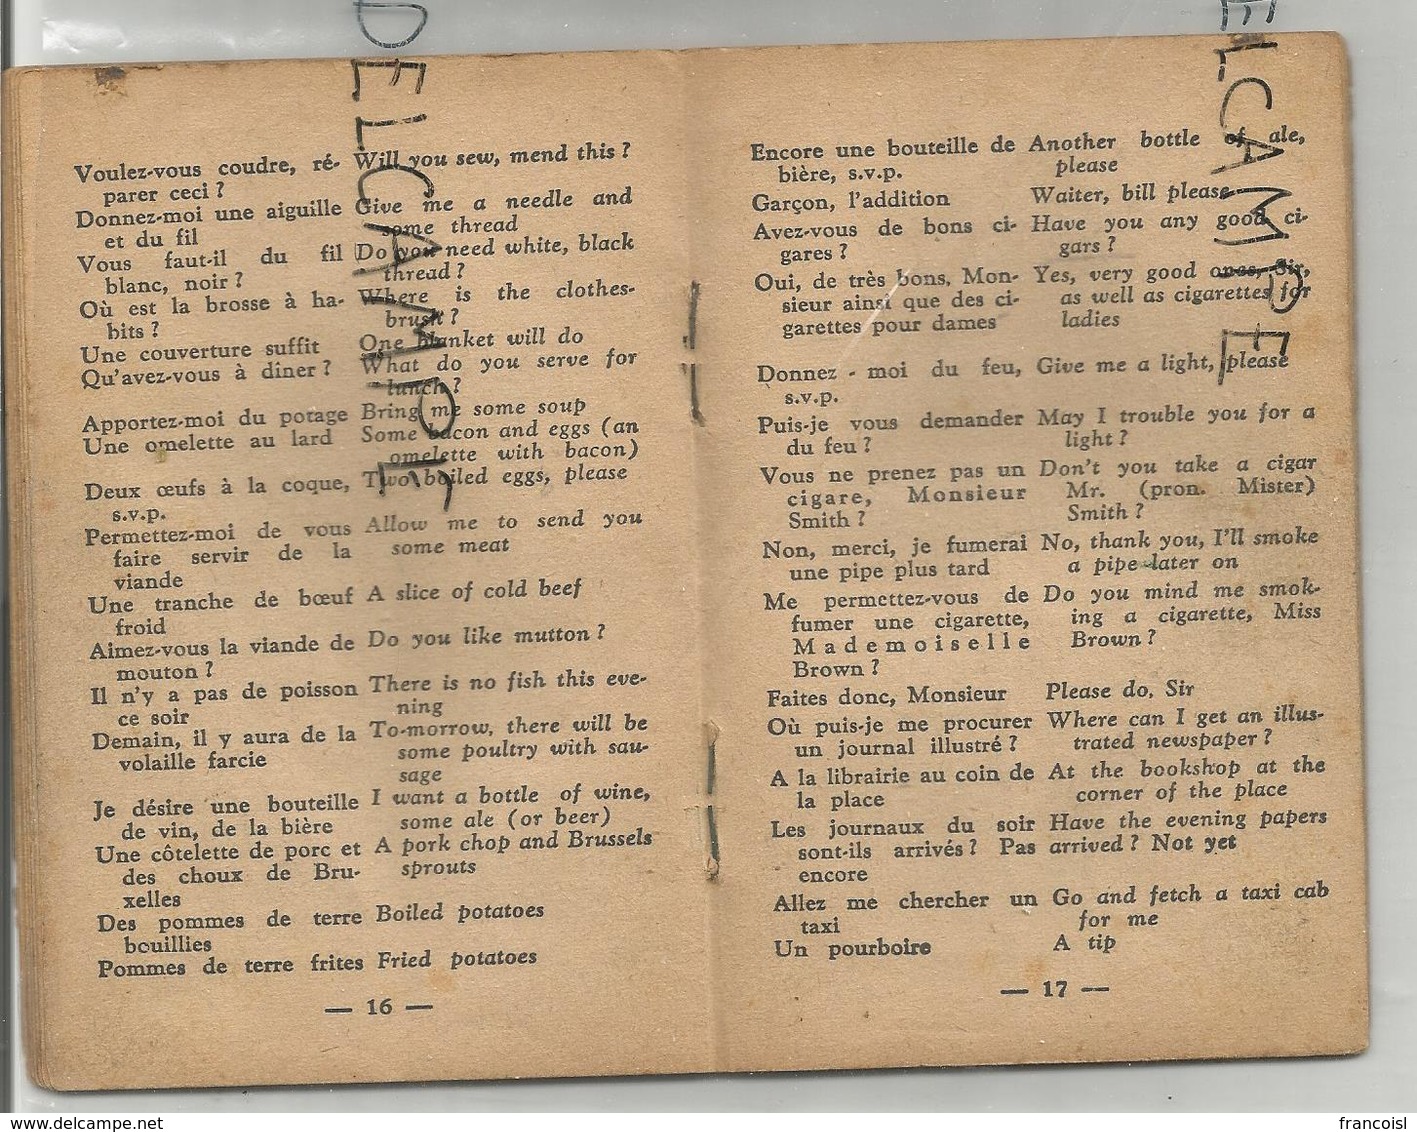 DELCAMPE
Voulez-vous coudre, ré-
parer ceci ?
Donnez-moi une aiguille
et du fil
Vous faut-il du fil
blanc, noir ?
Où est la brosse à ha-
bits ?
Une couverture suffit
Qu'avez-vous à dîner ?
Apportez-moi du potage
Une omelette au lard
Deux œufs à la coque,
s.v.p.
Permettez-moi de vous
faire servir de la
viande
Une tranche de bœuf
froid
Aimez-vous la viande de
mouton ?
Il n'y a pas de poisson
ce soir
Demain, il y aura de la
volaille farcie
Je désire une bouteille
de vin, de la bière
Une côtelette de porc et
des choux de Bru-
xelles
Des pommes de terre
bouillies
Pommes de terre frites
Will you sew, mend this ?
Give me a needle and
some thread
Do you need white, black
thread ?
Where is the clothes-
brush ?
One blanket will do
What do you serve for
lunch ?
Bring me some soup
Some bacon and eggs (an
omelette with bacon)
Two boiled eggs, please
Allow me to send you
some meat
A slice of cold beef
Do you like mutton ?
There is no fish this eve-
ning
To-morrow, there will be
some poultry with sau-
sage
I want a bottle of wine,
some ale (or beer)
A pork chop and Brussels
sprouts
Boiled potatoes
Fried potatoes
— 16 —
ELCAMPE
Encore une bouteille de
bière, s.v.p.
Garçon, l'addition
Avez-vous de bons ci-
gares ?
Oui, de très bons, Mon-
sieur ainsi que des ci-
garettes pour dames
Donnez - moi du feu,
s.v.p.
Puis-je vous demander
du feu ?
Vous ne prenez pas un
cigare, Monsieur
Smith ?
Non, merci, je fumerai
une pipe plus tard
Me permettez-vous de
fumer une cigarette,
Mademoiselle
Brown ?
Faites donc, Monsieur
Où puis-je me procurer
un journal illustré ?
A la librairie au coin de
la place
Les journaux du soir
sont-ils arrivés ? Pas
encore
Allez me chercher un
taxi
Un pourboire
Another bottle of ale,
please
Waiter, bill please
Have you any good ci-
gars ?
Yes, very good ones, Sir,
as well as cigarettes for
ladies
Give me a light, please
May I trouble you for a
light ?
Don't you take a cigar
Mr. (pron. Mister)
Smith ?
No, thank you, I'll smoke
a pipe later on
Do you mind me smok-
ing a cigarette, Miss
Brown ?
Please do, Sir
Where can I get an illus-
trated newspaper ?
At the bookshop at the
corner of the place
Have the evening papers
arrived ? Not yet
Go and fetch a taxi cab
for me
A tip
— 17 —
www.delcampe.net
francoisl